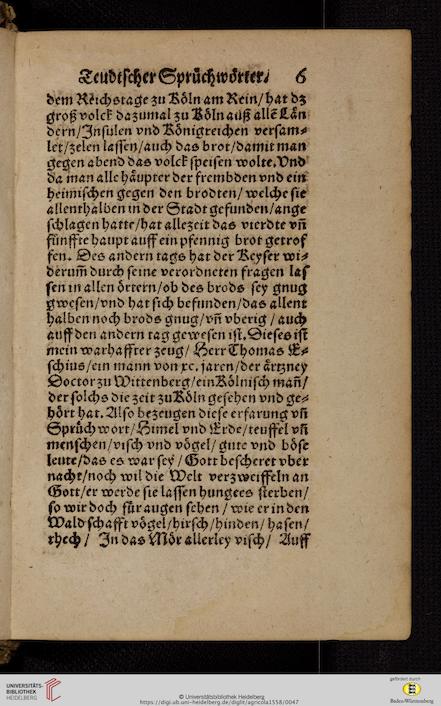 Teudtscher Sprüchwörter. 6
dem Reichstage zu Köln am Rein/hat dz
groß volck dazumal zu Köln auß allē Län
dern/Insulen vnd Königreichen versam⸗
let/zelen lassen/auch das brot/damit man
gegen abend das volck speisen wolte. Vnd
da man alle häupter der frembden vnd ein
heimischen gegen den brodten/welche sie
allenthalben in der Stadt gefunden/ange
schlagen hatte/hat allezeit das vierdte vn̄
fünffte haupt auff ein pfennig brot getrof
fen. Des andern tags hat der Keyser wi⸗
derum̄ durch seine verordneten fragen las
sen in allen örtern/ob des brods sey gnug
gwesen/vnd hat sich befunden/das allent
halben noch brods gnug/vn̄ vberig/auch
auff den andern tag gewesen ist. Dieses ist
mein warhaffter zeug/Herr Thomas E⸗
schius/ein mann von xc. jaren/der ärtzney
Doctor zu Wittenberg/ein Kölnisch man̄/
der solchs die zeit zu Köln gesehen vnd ge⸗
hört hat. Also bezeugen diese erfarung vn̄
Sprüchwort/Himel vnd Erde/teuffel vn̄
menschen/visch vnd vögel/gute vnd böse
leute/das es war sey/Gott bescheret vber
nacht/noch wil die Welt verzweiffeln an
Gott/er werde sie lassen hungers sterben/
so wir doch für augen sehen/wie er in den
Wald schafft vögel/hirsch/hinden/hasen/
rhech/In das Mör allerley visch/Auff
UNIVERSITÄTS-
BIBLIOTHEK
HEIDELBERG
© Universitätsbibliothek Heidelberg
https://digi.ub.uni-heidelberg.de/diglit/agricola1558/0047
gefördert durch
Baden-Württemberg